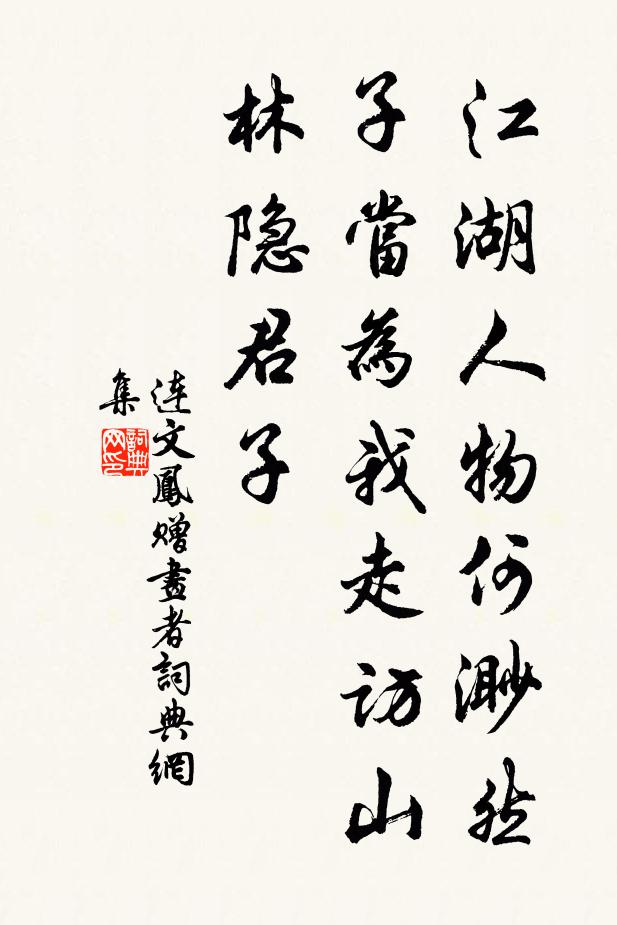 江湖人物何渺然
子當為我走訪山
林隐君子
连文鳳赠畫者詞典網
集
詞典網印